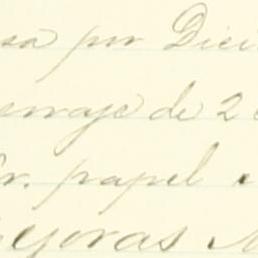 sa por Dici
enaje de 2
r. papel
ejoras M